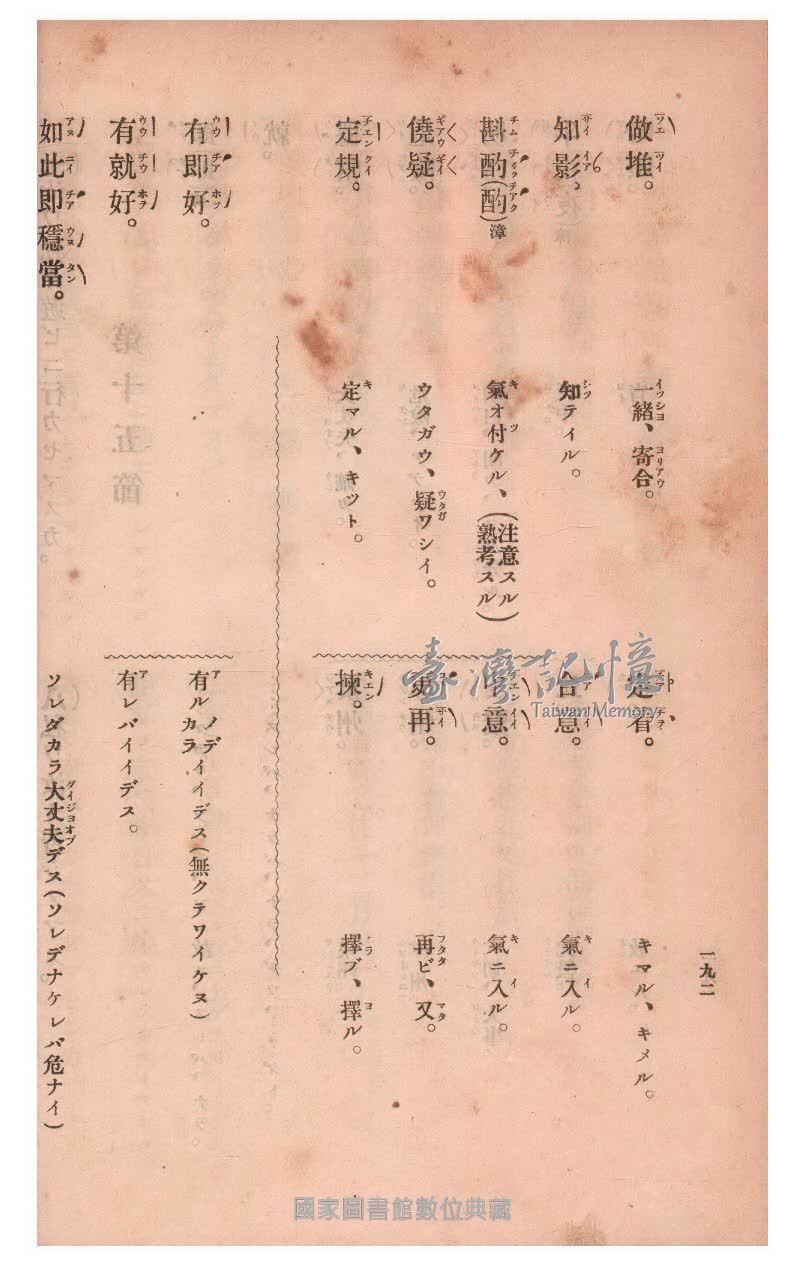 做堆。 一緒、寄合。
知影。 知テイル。
斟酌(酌)漳 氣オ付ケル、(注意スル 熟考スル)
僥疑。 ウタガウ、疑ワシイ。
定規。 定マル、キット。
定着。 キマル、キメル。
合意。 氣ニ入ル。
意。 氣ニ入ル。
更再。 再ビ、又。
揀。 擇ブ、擇ル。
有即好。 有ルノデイイデス(無クテワイケヌ) カラ
有就好。 有レバイイデス。
如此即穩當。 ソレダカラ大丈夫デス(ソレデナケレバ危ナイ)
一九二
臺灣記憶
Taiwan Memory
國家圖書館數位典藏